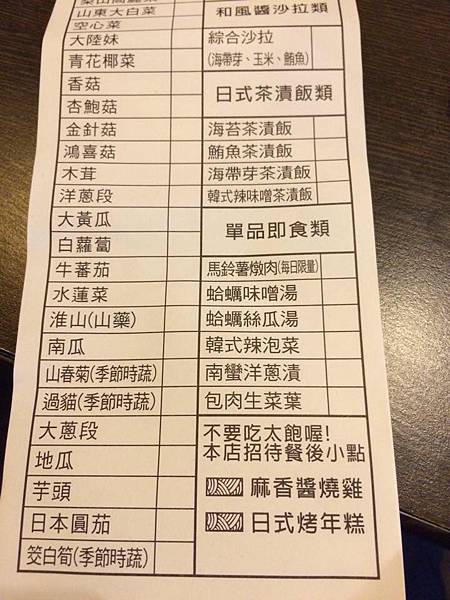 山東大白菜
空心菜
大陸妹
青花椰菜
香菇
杏鮑菇
金針菇
鴻喜菇
木茸
洋蔥段
大黃瓜
白蘿蔔
牛蕃茄
水蓮菜
淮山(山藥)
南瓜
山春菊(季節時蔬)
過貓(季節時蔬)
大蔥段
地瓜
芋頭
日本圓茄
筊白筍(季節時蔬)
和風醬沙拉類
綜合沙拉
(海帶芽、玉米、鮪魚)
日式茶漬飯類
海苔茶漬飯
鮪魚茶漬飯
海帶芽茶漬飯
韓式辣味噌茶漬飯
單品即食類
馬鈴薯燉肉(每日限量)
蛤蠣味噌湯
蛤蠣絲瓜湯
韓式辣泡菜
南蠻洋蔥漬
包肉生菜葉
不要吃太飽喔!
本店招待餐後小點
麻香醬燒雞
日式烤年糕